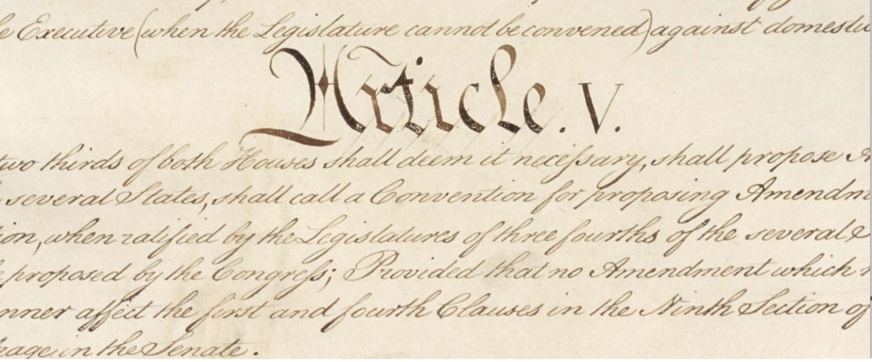 e Executive (when the Legislature cannot be convened) against domestic
Article. V.
two thirds of both Houses shall deem it necessary, shall propose A
several States, shall call a Convention for proposing Amendm
ion, when ratified by the Legislatures of three fourths of the several S
e proposed by the Congress; Provided that no Amendment which m
nner affect the first and fourth Clauses in the Ninth Section of
rage in the Senate.